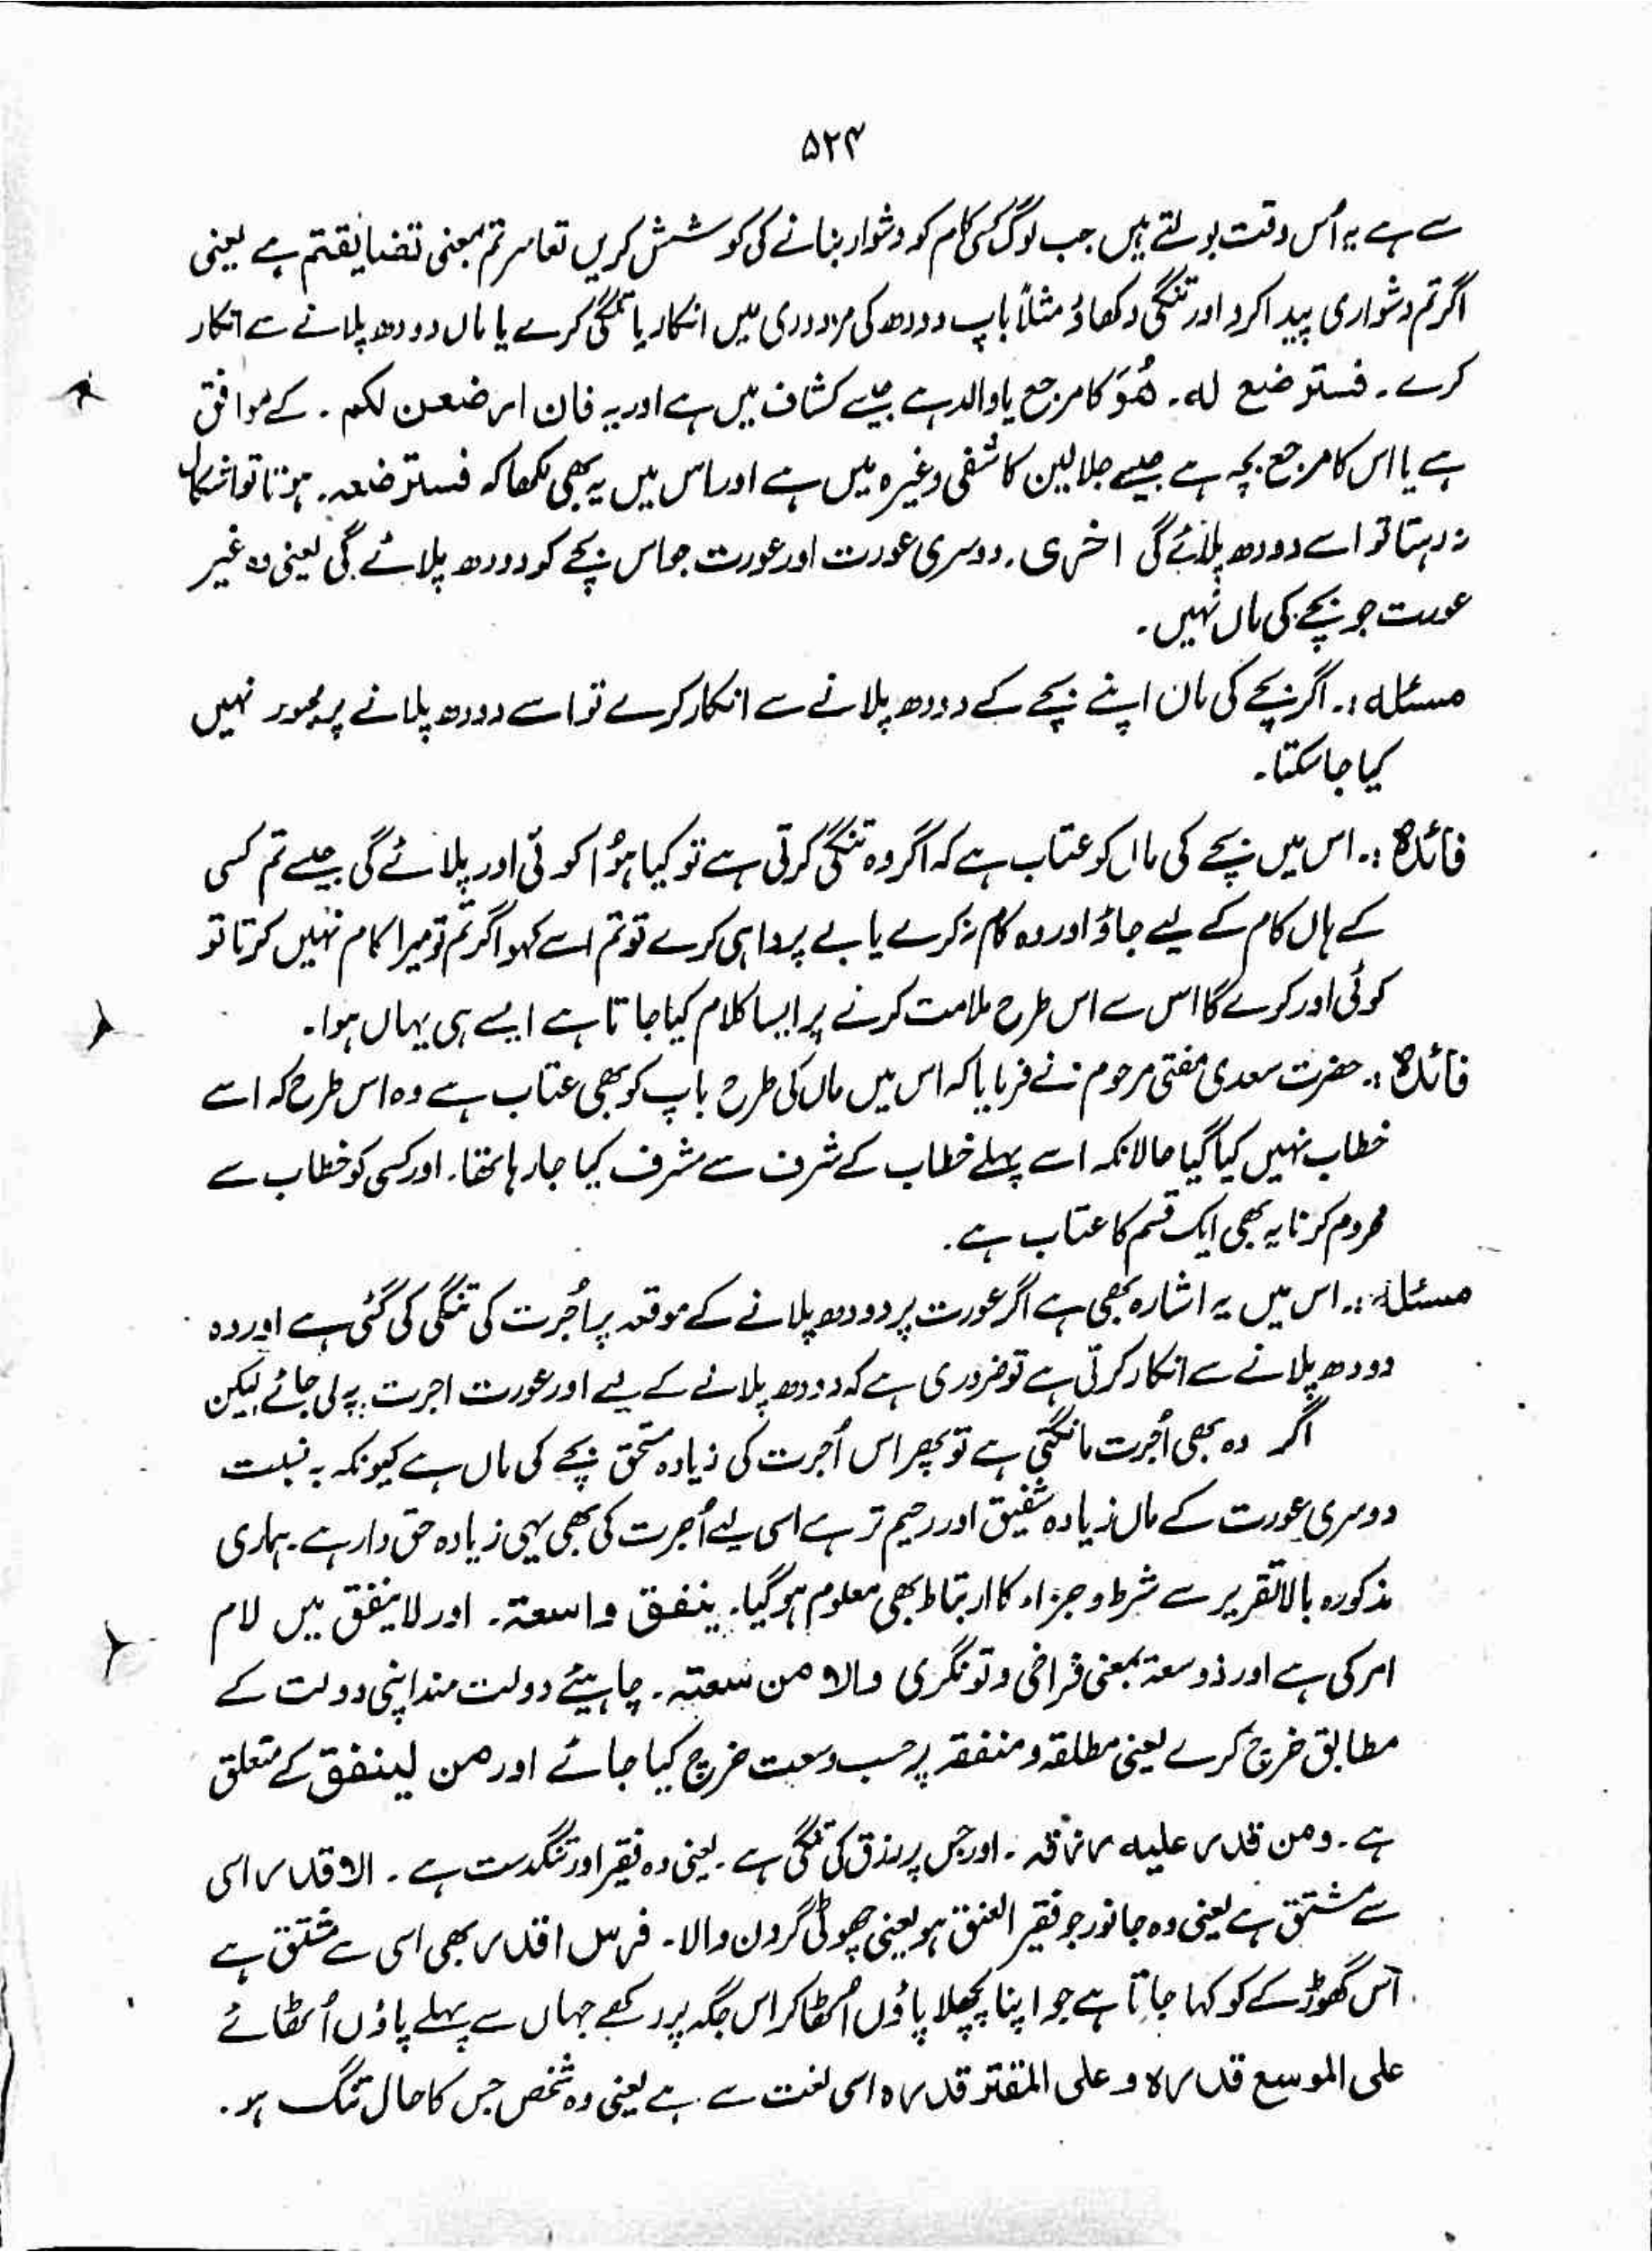 ۵۲۴
سے ہے یہ اُس وقت بولتے ہیں جب لوگ کسی کام کو دشوار بنانے کی کوشش کریں تعاسرتم بمعنی تضایقتم ہے یعنی
اگر تم دشواری پیدا کرو اور تنگی دکھاؤ مثلاً باپ دودھ کی مزدوری میں انکار یا تنگی کرے یا ماں دودھ پلانے سے انکار
کرے۔ فسترضع لہ۔ ھُوَ کا مرجع یا والد ہے جیسے کشاف میں ہے اور یہ فان ارضعن لکم۔ کے موافق
ہے یا اس کا مرجع بچہ ہے جیسے جلالین کاشفی وغیرہ میں ہے اور اس میں یہ بھی لکھا کہ فسترضعہ۔ ہوتا تو اشکال
نہ رہتا تو اسے دودھ پلائے گی اخری۔ دوسری عورت اور عورت جو اس بچے کو دودھ پلائے گی یعنی وہ غیر
عورت جو بچے کی ماں نہیں۔
مسئلہ :۔ اگر بچے کی مان اپنے بچے کے دودھ پلانے سے انکار کرے تو اسے دودھ پلانے پر مجبور نہیں
کیا جا سکتا۔
فائدہ :۔ اس میں بچے کی ماں کو عتاب ہے کہ اگر وہ تنگی کرتی ہے تو کیا ہوُا کوئی اور پلائے گی جیسے تم کسی
کے ہاں کام کے لیے جاؤ اور وہ کام نہ کرے یا بے پرواہی کرے تو تم اسے کہو اگر تم تو میرا کام نہیں کرتا تو
کوئی اور کرے گا اس سے اس طرح ملامت کرنے پر ایسا کلام کیا جاتا ہے ایسے ہی یہاں ہوا۔
فائدہ :۔ حضرت سعدی مفتی مرحوم نے فرمایا کہ اس میں ماں کی طرح باپ کو بھی عتاب ہے وہ اس طرح کہ اسے
خطاب نہیں کیا گیا حالانکہ اسے پہلے خطاب کے شرف سے مشرف کیا جا رہا تھا۔ اور کسی کو خطاب سے
محروم کرنا یہ بھی ایک قسم کا عتاب ہے۔
مسئلہ :۔ اس میں یہ اشارہ بھی ہے اگر عورت پر دودھ پلانے کے موقعہ پر اُجرت کی تنگی کی گئی ہے اور وہ
دودھ پلانے سے انکار کرتی ہے تو ضروری ہے کہ دودھ پلانے کے لیے اور عورت اجرت پہ لی جائے لیکن
اگر وہ بھی اُجرت مانگتی ہے تو پھر اس اُجرت کی زیادہ مستحق بچے کی ماں ہے کیونکہ بہ نسبت
دوسری عورت کے ماں زیادہ شفیق اور رحیم تر ہے اسی لیے اُجرت کی بھی یہی زیادہ حق دار ہے۔ ہماری
مذکورہ بالا تقریر سے شرط و جزاء کا ارتباط بھی معلوم ہو گیا۔ ینفق واسعتہ۔ اور لاینفق میں لام
امر کی ہے اور ذوسعتہ بمعنی فراخی و تونگری والا من سعتہ۔ چاہیئے دولت مند اپنی دولت کے
مطابق خرچ کرے یعنی مطلقہ و منفقہ پر حسب وسعت خرچ کیا جائے اور من لینفق کے متعلق
ہے۔ ومن قدر علیہ رزقہ۔ اور جس پر رزق کی تنگی ہے۔ یعنی وہ فقیر اور تنگدست ہے۔ الاقدر اسی
سے مشتق ہے یعنی وہ جانور جو فقیر العنق ہو یعنی چھوٹی گردن والا۔ فرس اقدر بھی اسی سے مشتق ہے
اُس گھوڑے کو کہا جاتا ہے جو اپنا پچھلا پاؤں اُٹھا کر اس جگہ پر رکھے جہاں سے پہلے پاؤں اُٹھائے
علی الموسع قدرہ و علی المقتر قدرہ اسی لغت سے ہے یعنی وہ شخص جس کا حال تنگ ہو۔